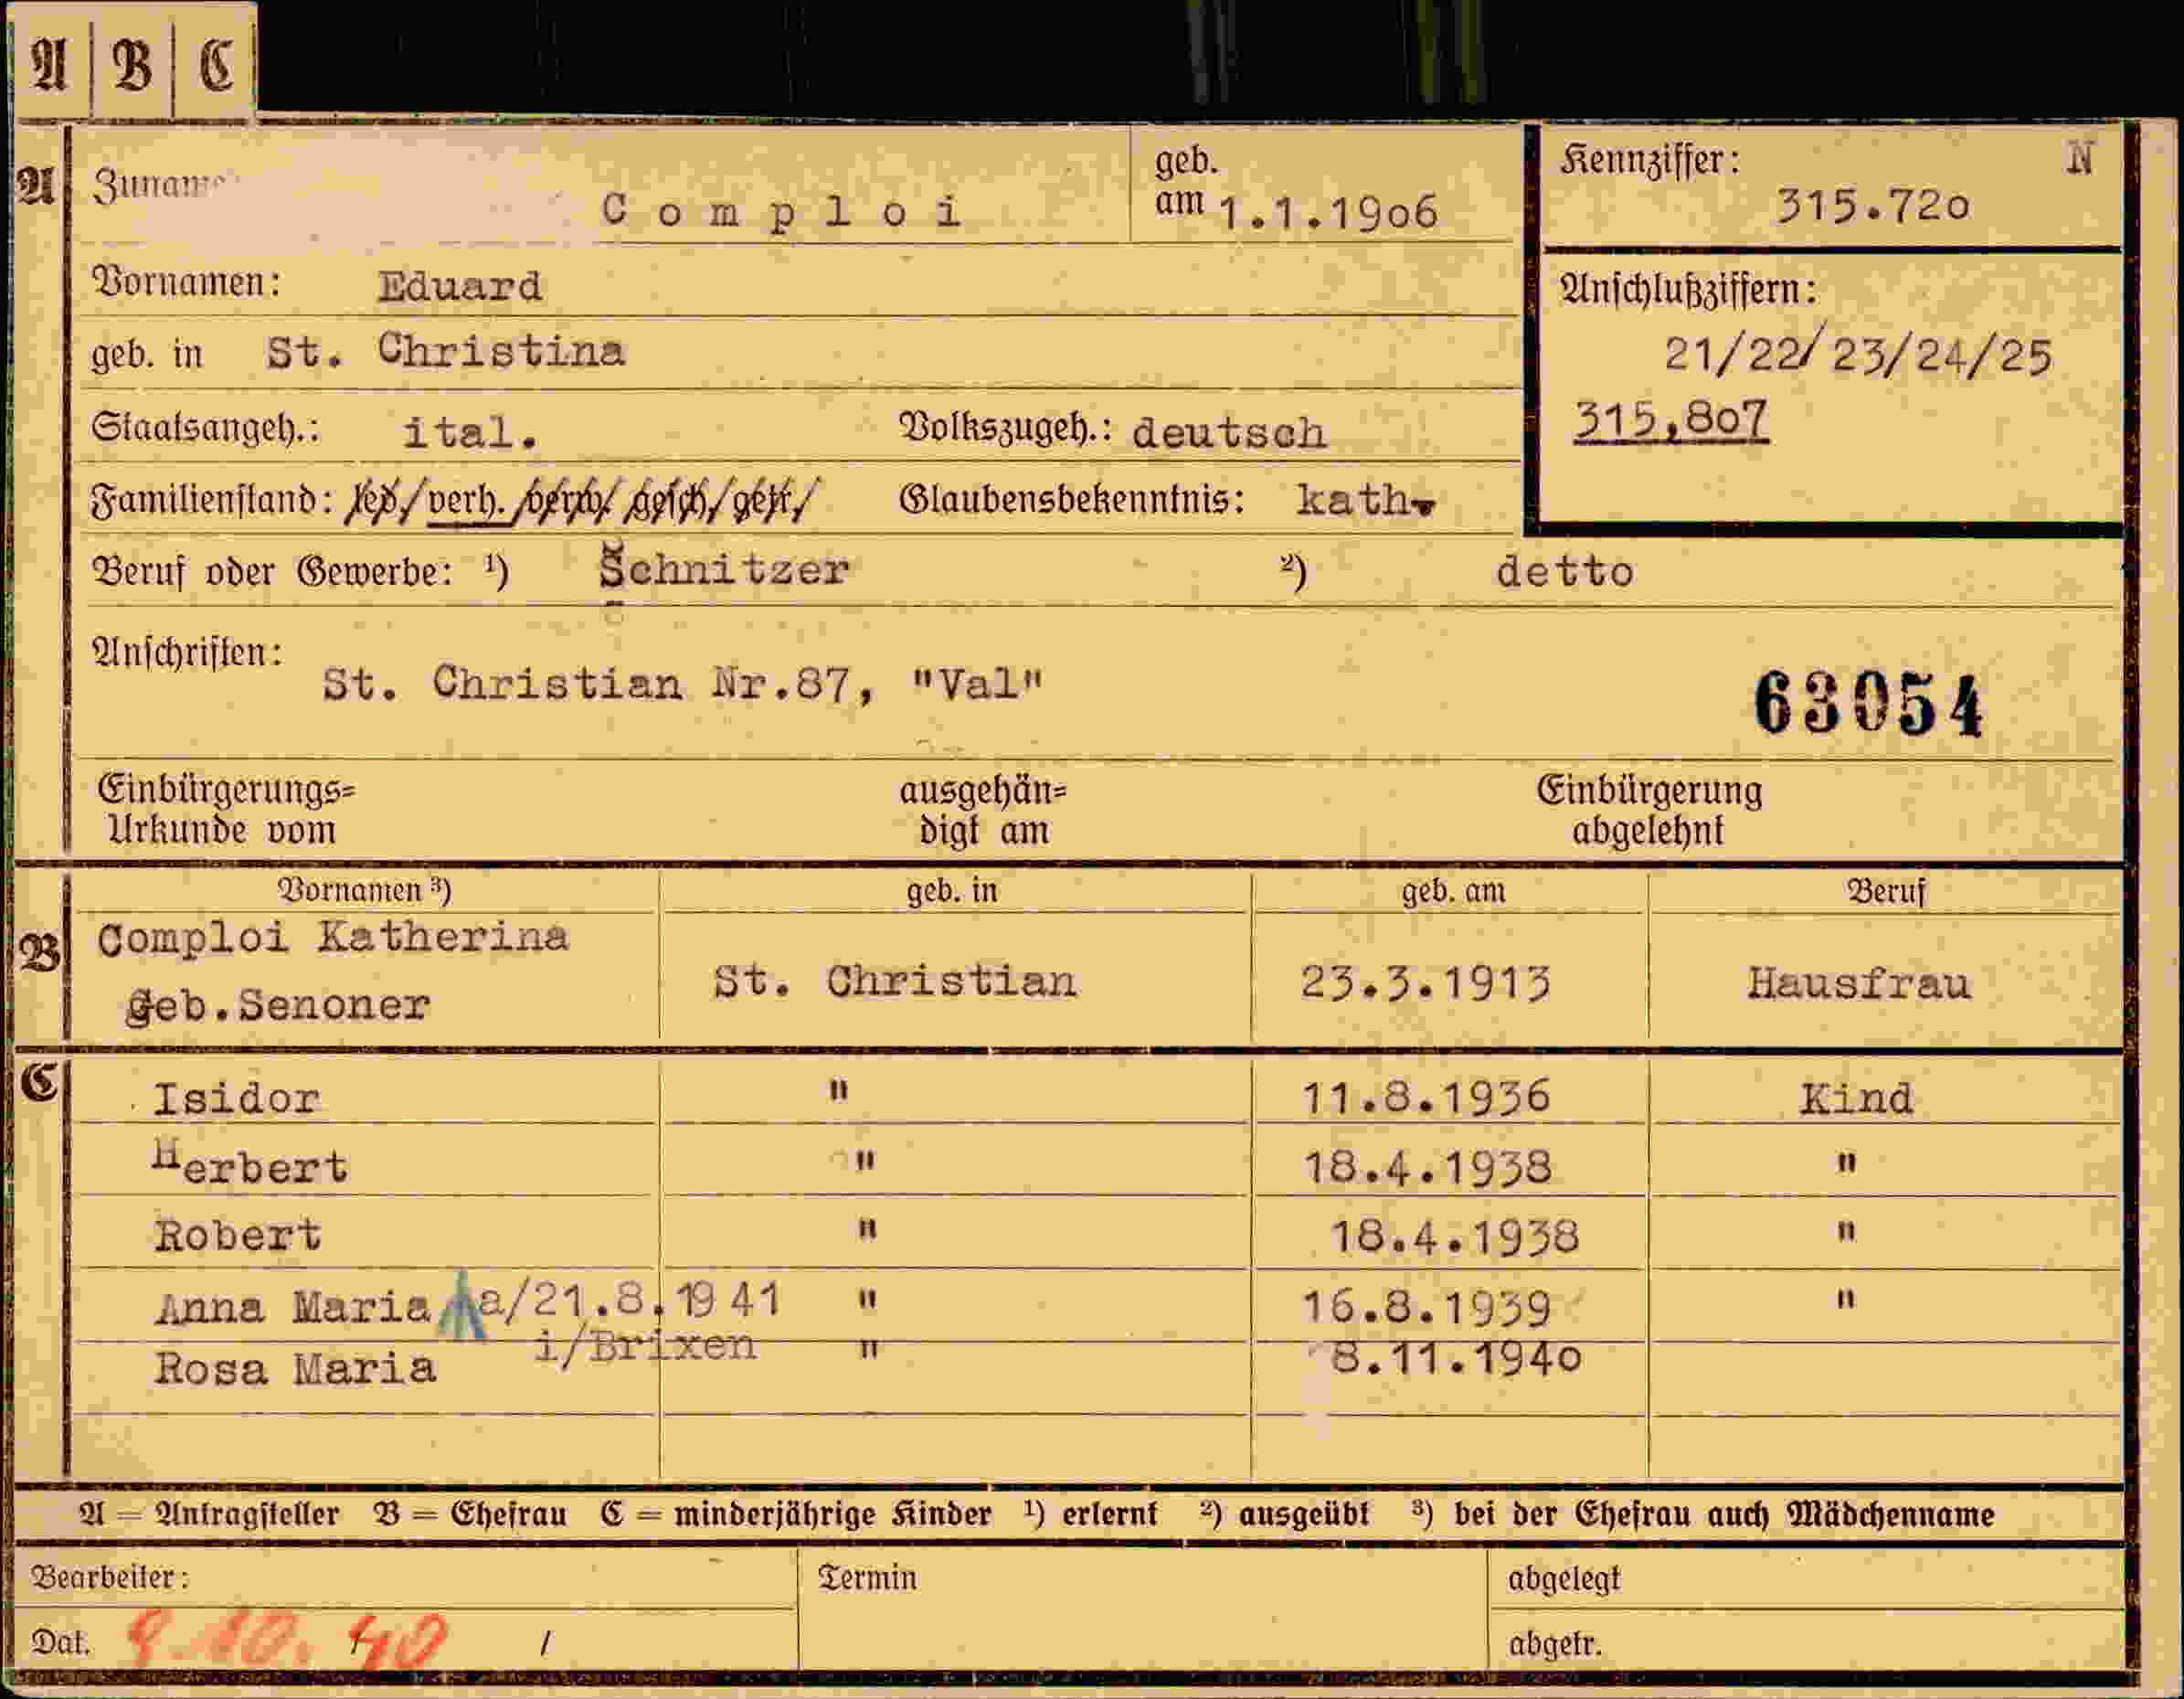 A B C
A Zuname Comploi geb. am 1.1.1906 Kennziffer: N
315.720
Vornamen: Eduard
Anschlußziffern:
21/22/23/24/25
315,807
geb. in St. Christina
Staatsangeh.: ital. Volkszugeh.: deutsch
Familienstand: led/verh./verw/gesch/getr/ Glaubensbekenntnis: kath.
Beruf oder Gewerbe: ¹) Schnitzer ²) detto
Anschriften: St. Christian Nr.87, "Val"
63054
Einbürgerungs=Urkunde vom ausgehän=digt am Einbürgerung abgelehnt
Vornamen ³) geb. in geb. am Beruf
B Comploi Katherina
geb.Senoner St. Christian 23.3.1913 Hausfrau
C Isidor " 11.8.1936 Kind
Herbert " 18.4.1938 "
Robert " 18.4.1938 "
Anna Maria a/21.8.1941 " 16.8.1939 "
i/Brixen
Rosa Maria " 8.11.1940
A = Antragsteller B = Ehefrau C = minderjährige Kinder ¹) erlernt ²) ausgeübt ³) bei der Ehefrau auch Mädchenname
Bearbeiter: Termin abgelegt
Dat. 9.10.40 / abgetr.